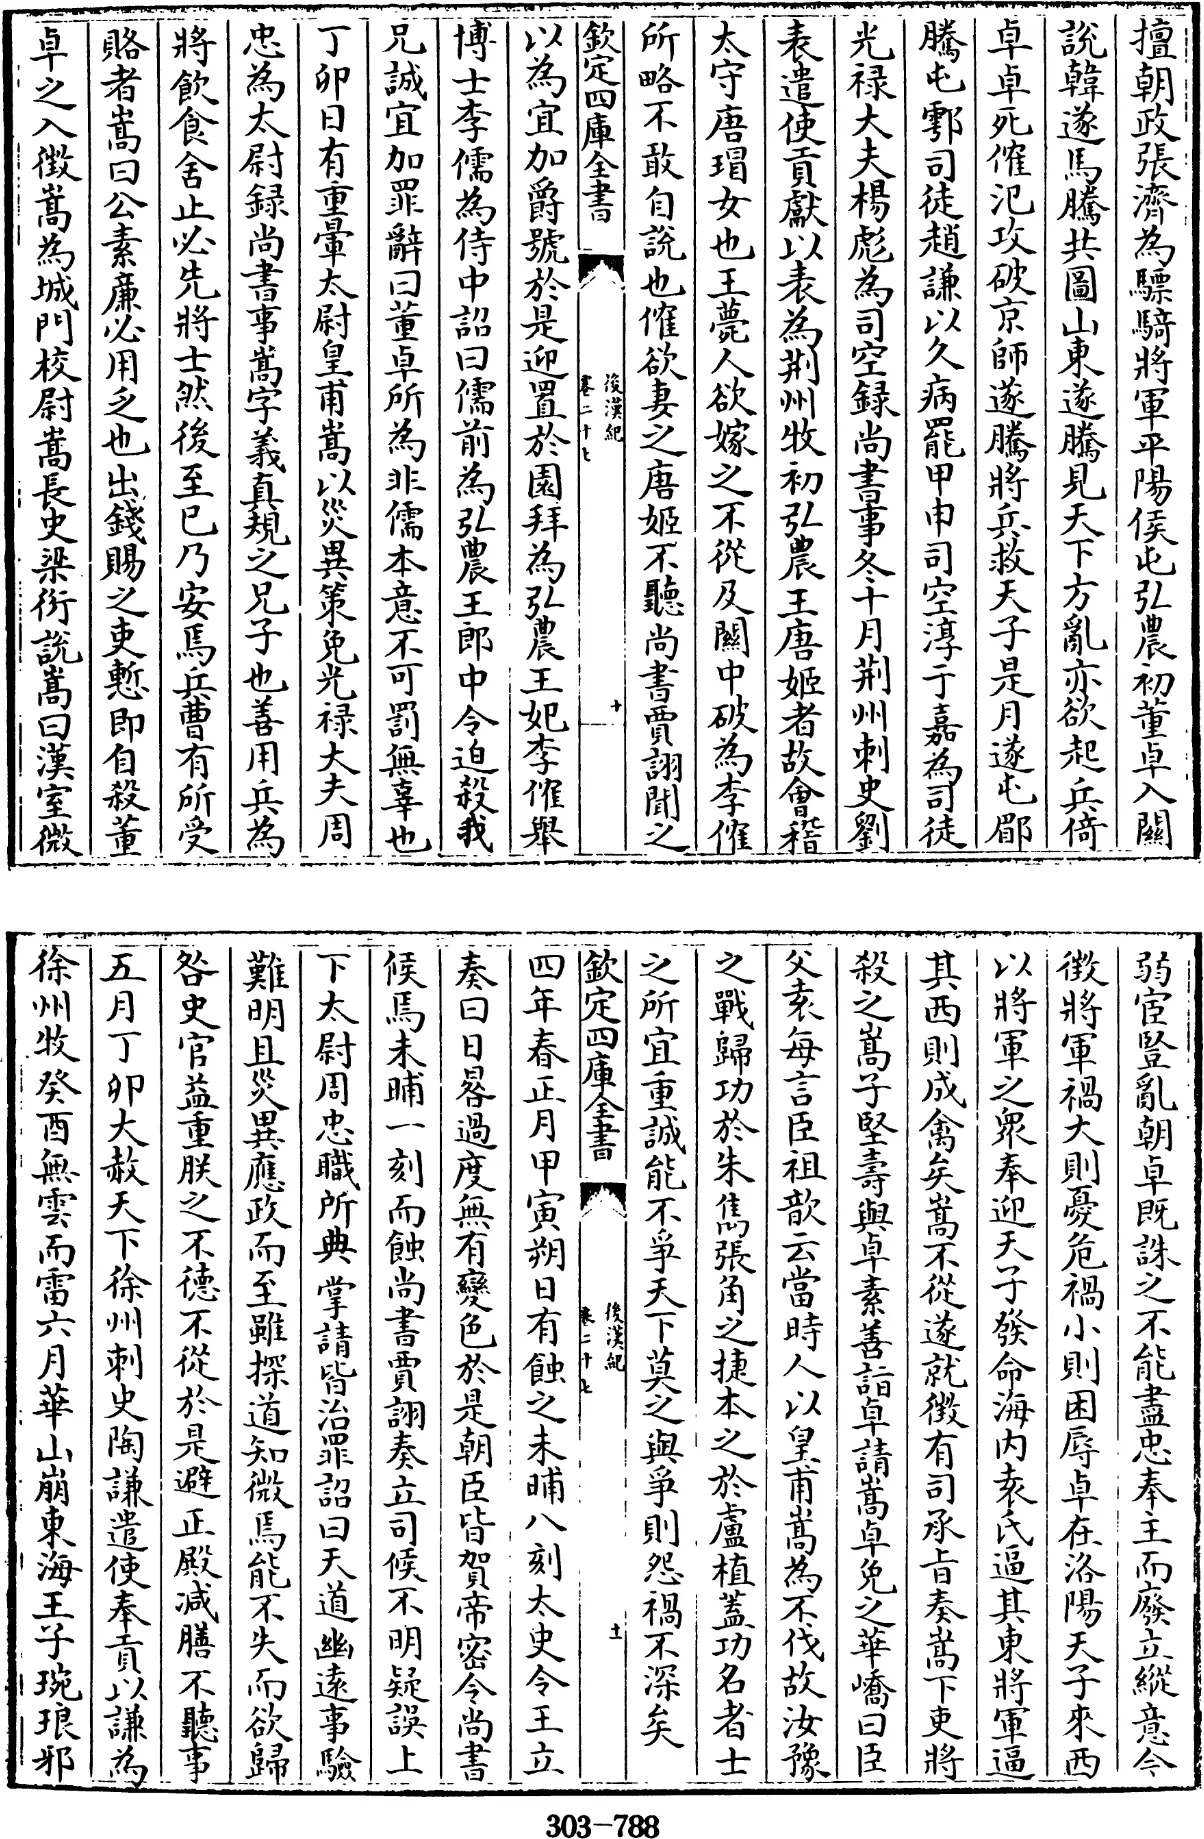 擅朝政張濟為驃騎將軍平陽侯屯弘農初董卓入關
說韓遂馬騰共圖山東遂騰見天下方亂亦欲起兵倚
卓卓死傕汜攻破京師遂騰將兵救天子是月遂屯郿
騰屯鄠司徒趙謙以久病罷甲申司空淳于嘉為司徒
光禄大夫楊彪為司空録尚書事冬十月荆州刺史劉
表遣使貢獻以表為荆州牧初弘農王唐姬者故會稽
太守唐瑁女也王薨人欲嫁之不從及關中破為李傕
所略不敢自說也傕欲妻之唐姬不聽尚書賈詡聞之
欽定四庫全書
後漢紀
卷二十七
十
以為宜加爵號於是迎置於園拜為弘農王妃李傕舉
博士李儒為侍中詔曰儒前為弘農王郎中令迫殺我
兄誠宜加罪辭曰董卓所為非儒本意不可罰無辜也
丁卯日有重暈太尉皇甫嵩以災異策免光禄大夫周
忠為太尉録尚書事嵩字義真規之兄子也善用兵為
將飲食舍止必先將士然後至已乃安焉兵曹有所受
賂者嵩曰公素廉必用乏也出錢賜之吏慙即自殺董
卓之入徵嵩為城門校尉嵩長史梁衍說嵩曰漢室微
弱宦豎亂朝卓既誅之不能盡忠奉主而廢立縱意今
徵將軍禍大則憂危禍小則困辱卓在洛陽天子來西
以將軍之衆奉迎天子發命海内袁氏逼其東將軍逼
其西則成禽矣嵩不從遂就徵有司承旨奏嵩下吏將
殺之嵩子堅壽與卓素善詣卓請嵩卓免之華嶠曰臣
父袁每言臣祖歆云當時人以皇甫嵩為不伐故汝豫
之戰歸功於朱雋張角之捷本之於盧植蓋功名者士
之所宜重誠能不爭天下莫之與爭則怨禍不深矣
欽定四庫全書
後漢紀
卷二十七
十一
四年春正月甲寅朔日有蝕之未晡八刻太史令王立
奏曰日晷過度無有變色於是朝臣皆賀帝密令尚書
候焉未晡一刻而蝕尚書賈詡奏立司候不明疑誤上
下太尉周忠職所典掌請皆治罪詔曰天道幽遠事驗
難明且災異應政而至雖探道知微焉能不失而欲歸
咎史官益重朕之不德不從於是避正殿減膳不聽事
五月丁卯大赦天下徐州刺史陶謙遣使奉貢以謙為
徐州牧癸酉無雲而雷六月華山崩東海王子琬琅邪
303-788